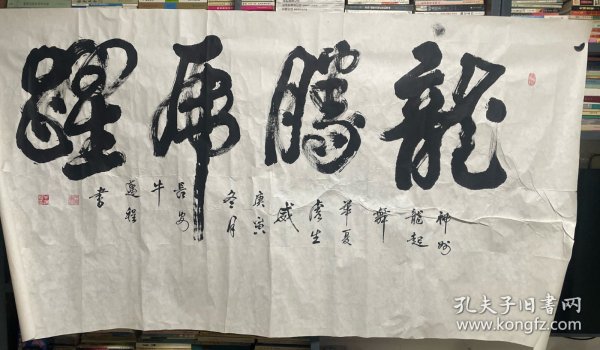 龍騰虎躍
神州
龍起
舞
華夏
虎生
威
庚寅
冬月
長安
牛
蓬程
書
孔夫子旧书网
www.kongfz.com